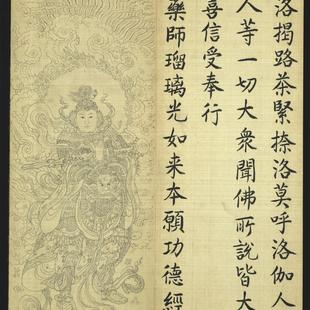 洛揭路茶緊捺洛莫呼洛伽人
人等一切大衆聞佛所說皆大
喜信受奉行
藥師瑠璃光如来本願功德經